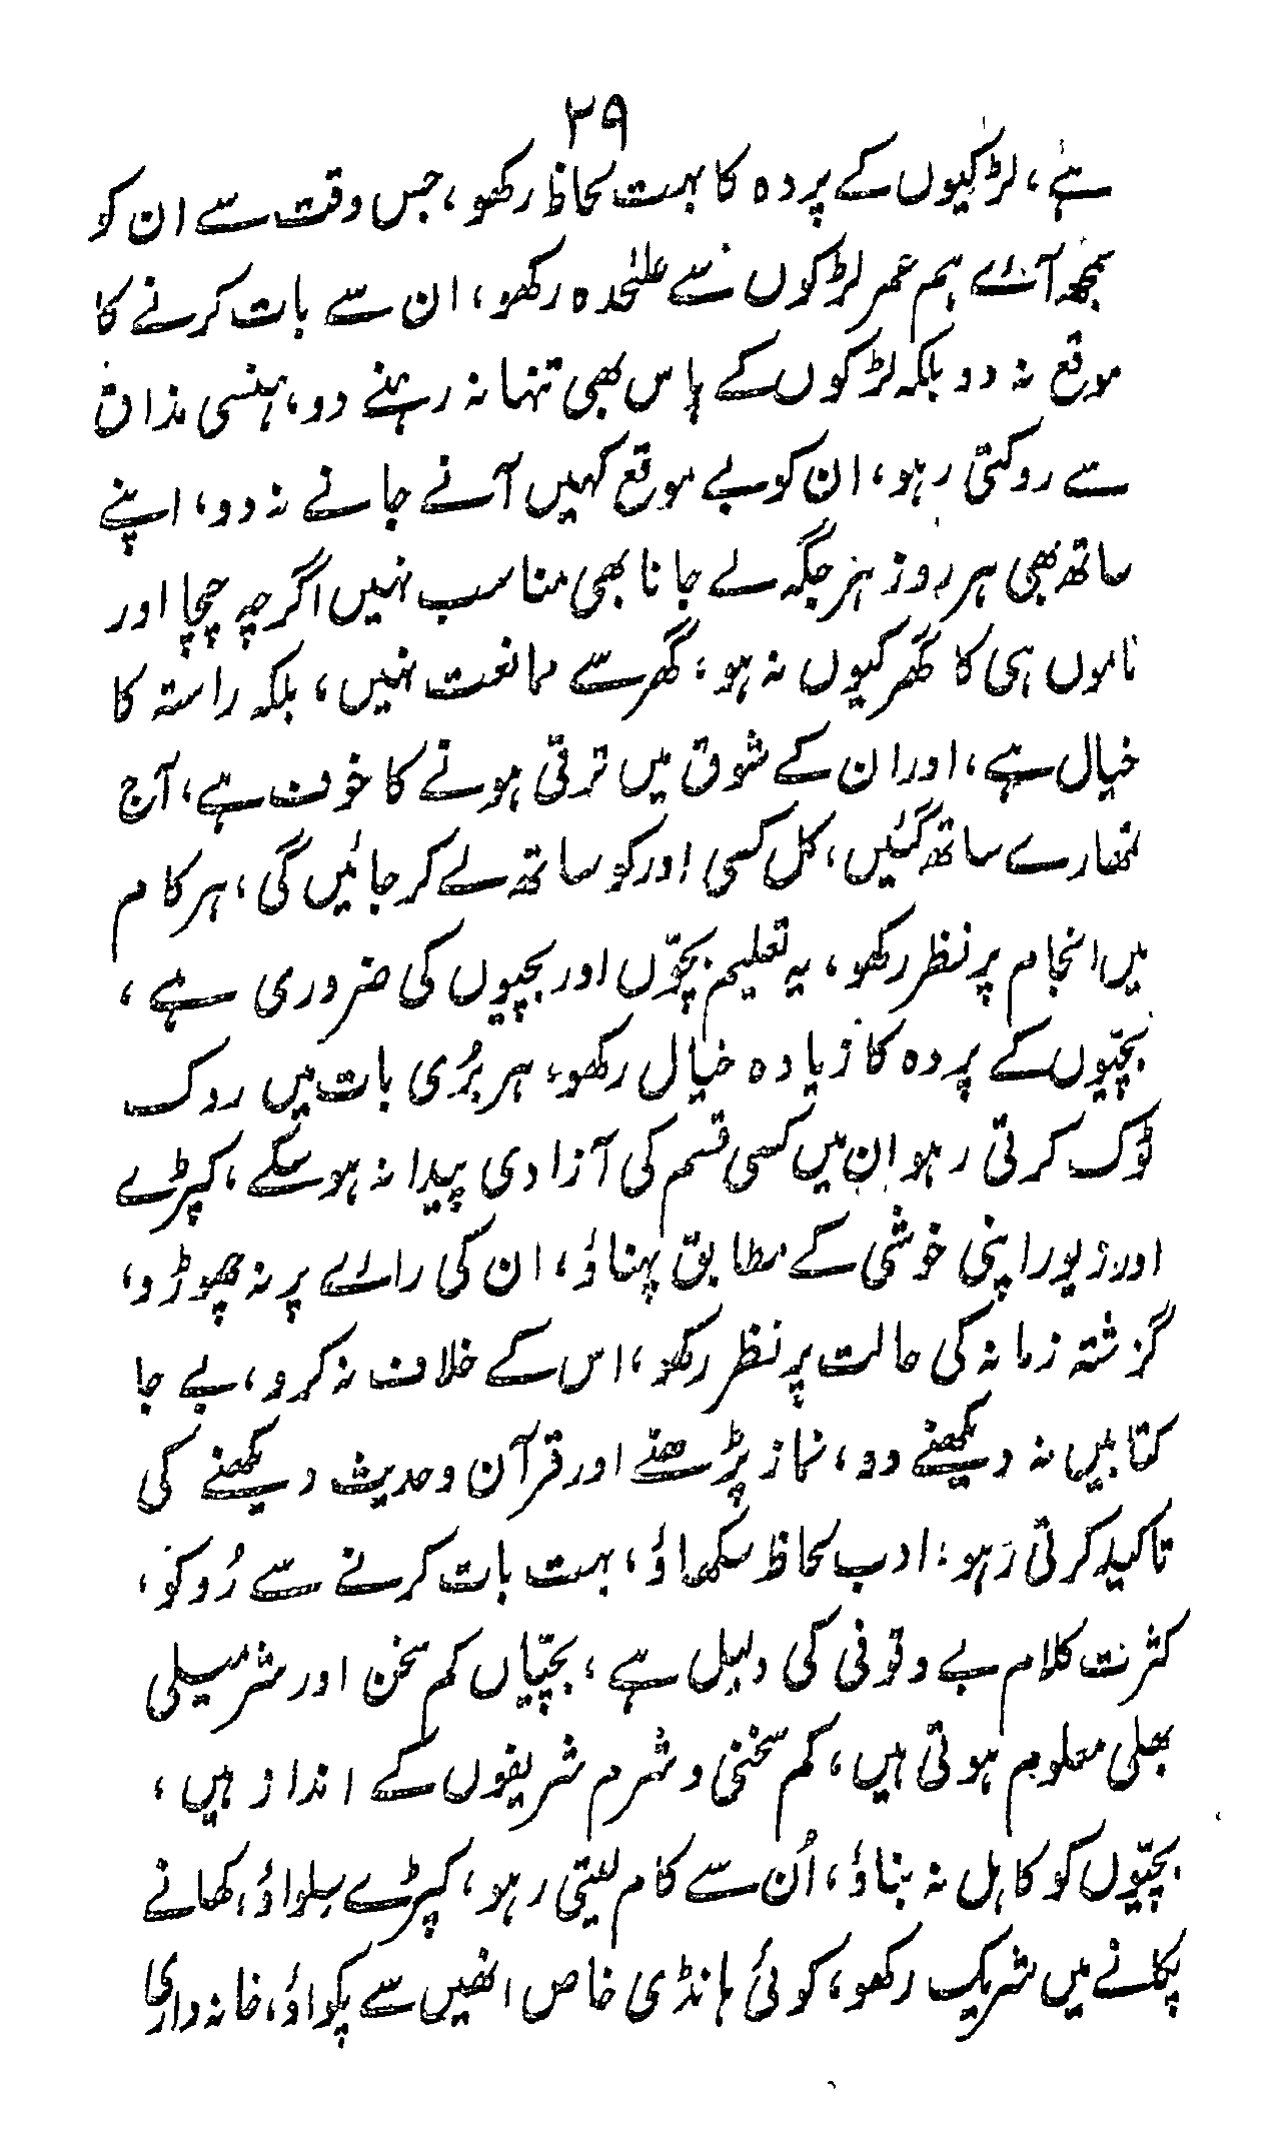 ۲۹
ہے، لڑکیوں کے پردہ کا بہت لحاظ رکھو، جس وقت سے ان کو
سمجھ آئے ہم عمر لڑکوں سے علیٰحدہ رکھو، ان سے بات کرنے کا
موقع نہ دو بلکہ لڑکوں کے پاس بھی تنہا نہ رہنے دو، ہنسی مذاق
سے روکتی رہو، ان کو بے موقع کہیں آنے جانے نہ دو، اپنے
ساتھ بھی ہر روز ہر جگہ لے جانا بھی مناسب نہیں اگرچہ چچا اور
ماموں ہی کا گھر کیوں نہ ہو، گھر سے ممانعت نہیں، بلکہ راستہ کا
خیال ہے، اور ان کے شوق میں ترقی ہونے کا خوف ہے، آج
تمھارے ساتھ گئیں، کل کسی اور کو ساتھ لے کر جائیں گی، ہر کام
میں انجام پر نظر رکھو، یہ تعلیم بچّوں اور بچیوں کی ضروری ہے،
بچّیوں کے پردہ کا زیادہ خیال رکھو، ہر بُری بات میں روک
ٹوک کرتی رہو ان میں کسی قسم کی آزادی پیدا نہ ہو سکے، کپڑے
اور زیور اپنی خوشی کے مطابق پہناؤ، ان کی رائے پر نہ چھوڑ دو،
گزشتہ زمانہ کی حالت پر نظر رکھو، اس کے خلاف نہ کرو، بے جا
کتابیں نہ دیکھنے دو، نماز پڑھنے اور قرآن و حدیث دیکھنے کی
تاکید کرتی رہو، ادب لحاظ سکھاؤ، بہت بات کرنے سے رُوکو،
کثرت کلام بے وقوفی کی دلیل ہے، بچّیاں کم سخن اور شرمیلی
بھلی معلوم ہوتی ہیں، کم سخنی و شرم شریفوں کے انداز ہیں،
بچّیوں کو کاہل نہ بناؤ، اُن سے کام لیتی رہو، کپڑے سلواؤ، کھانے
پکانے میں شریک رکھو، کوئی ہانڈی خاص انھیں سے پکواؤ، خانہ داری